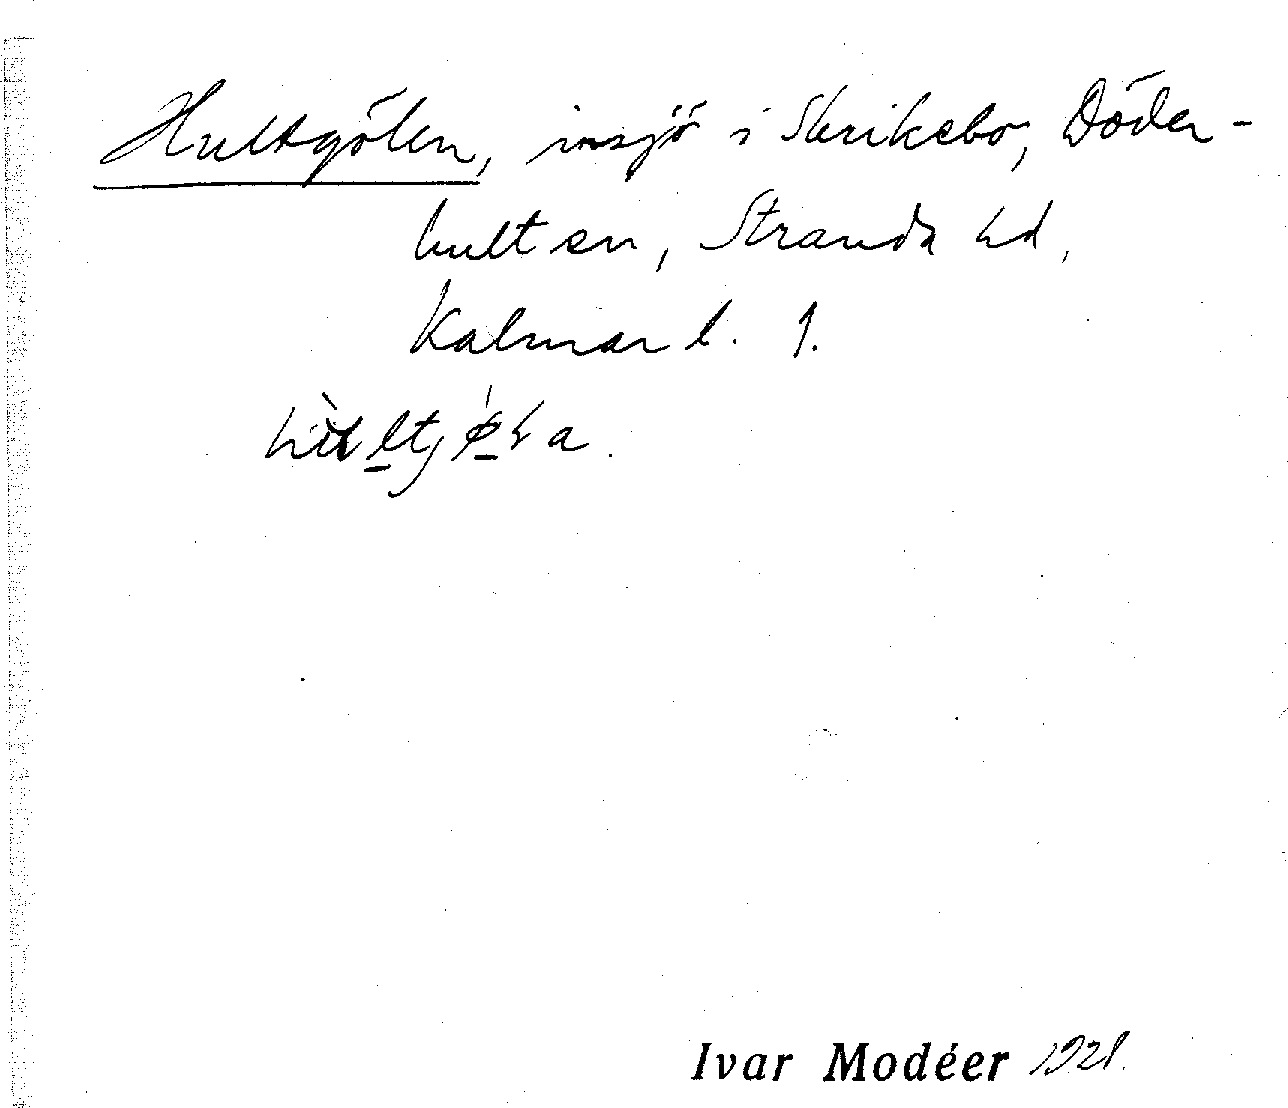 Hultgölen, insjö i Skrikebo, Döder-
hult sn, Stranda hd,
Kalmar l. 1.
Ivar Modéer 1928.